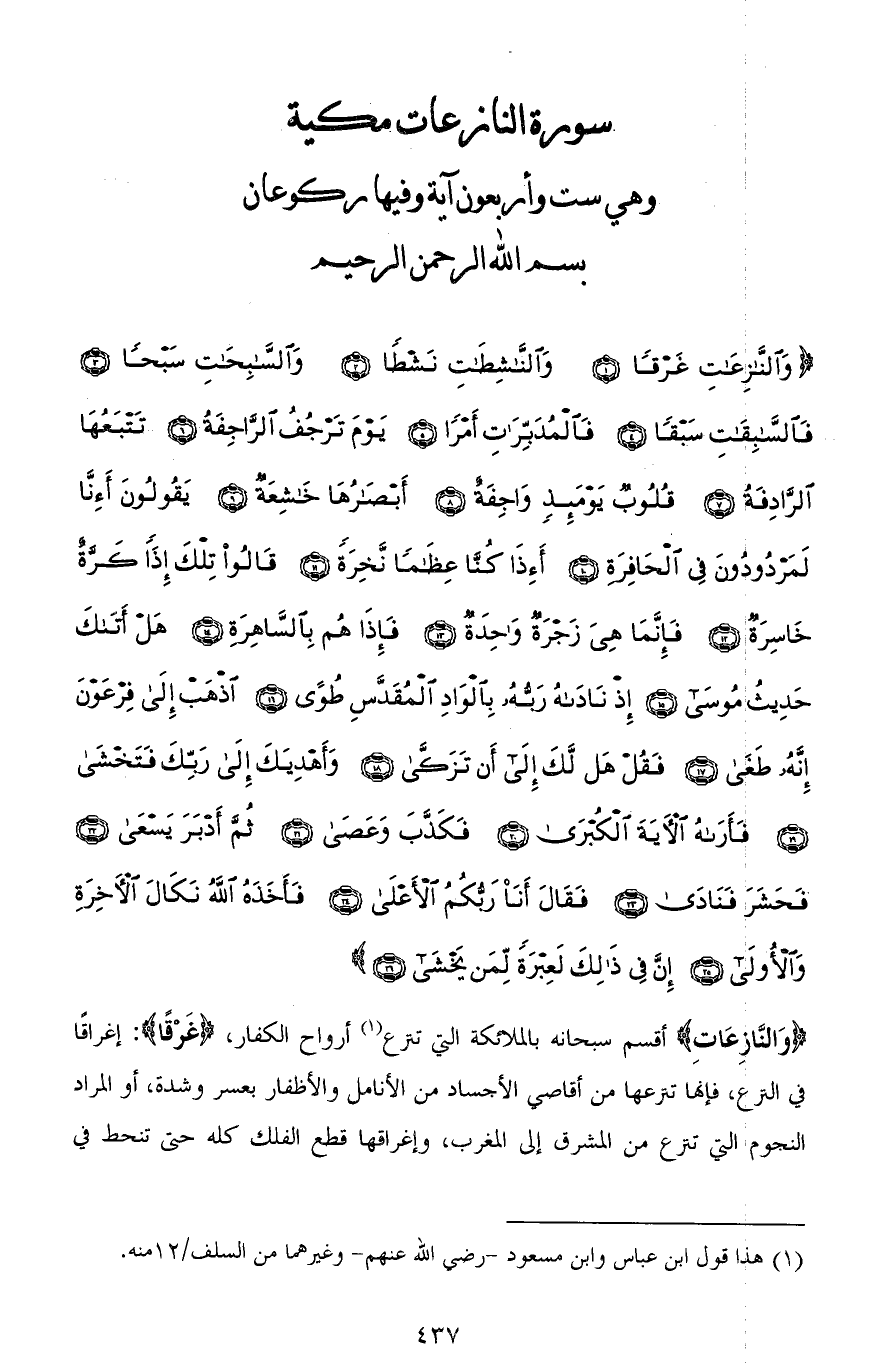 سورة النازعات مكية
وهي ست وأربعون آية وفيها ركوعان
بسم الله الرحمن الرحيم
﴿ وَٱلنَّٰزِعَٰتِ غَرْقًا ۝١ وَٱلنَّٰشِطَٰتِ نَشْطًا ۝٢ وَٱلسَّٰبِحَٰتِ سَبْحًا ۝٣
فَٱلسَّٰبِقَٰتِ سَبْقًا ۝٤ فَٱلْمُدَبِّرَٰتِ أَمْرًا ۝٥ يَوْمَ تَرْجُفُ ٱلرَّاجِفَةُ ۝٦ تَتْبَعُهَا
ٱلرَّادِفَةُ ۝٧ قُلُوبٌ يَوْمَئِذٍ وَاجِفَةٌ ۝٨ أَبْصَٰرُهَا خَٰشِعَةٌ ۝٩ يَقُولُونَ أَءِنَّا
لَمَرْدُودُونَ فِي ٱلْحَافِرَةِ ۝١٠ أَءِذَا كُنَّا عِظَٰمًا نَّخِرَةً ۝١١ قَالُوا۟ تِلْكَ إِذًا كَرَّةٌ
خَاسِرَةٌ ۝١٢ فَإِنَّمَا هِيَ زَجْرَةٌ وَٰحِدَةٌ ۝١٣ فَإِذَا هُم بِٱلسَّاهِرَةِ ۝١٤ هَلْ أَتَىٰكَ
حَدِيثُ مُوسَىٰٓ ۝١٥ إِذْ نَادَىٰهُ رَبُّهُۥ بِٱلْوَادِ ٱلْمُقَدَّسِ طُوًى ۝١٦ ٱذْهَبْ إِلَىٰ فِرْعَوْنَ
إِنَّهُۥ طَغَىٰ ۝١٧ فَقُلْ هَل لَّكَ إِلَىٰٓ أَن تَزَكَّىٰ ۝١٨ وَأَهْدِيَكَ إِلَىٰ رَبِّكَ فَتَخْشَىٰ
۝١٩ فَأَرَىٰهُ ٱلْـَٔايَةَ ٱلْكُبْرَىٰ ۝٢٠ فَكَذَّبَ وَعَصَىٰ ۝٢١ ثُمَّ أَدْبَرَ يَسْعَىٰ ۝٢٢
فَحَشَرَ فَنَادَىٰ ۝٢٣ فَقَالَ أَنَا۠ رَبُّكُمُ ٱلْأَعْلَىٰ ۝٢٤ فَأَخَذَهُ ٱللَّهُ نَكَالَ ٱلْـَٔاخِرَةِ
وَٱلْأُولَىٰٓ ۝٢٥ إِنَّ فِي ذَٰلِكَ لَعِبْرَةً لِّمَن يَخْشَىٰٓ ۝٢٦ ﴾
﴿وَالنَّازِعَاتِ﴾ أقسم سبحانه بالملائكة التي تنزع(١) أرواح الكفار، ﴿غَرْقًا﴾: إغراقًا
في النزع، فإنها تنزعها من أقاصي الأجساد من الأنامل والأظفار بعسر وشدة، أو المراد
النجوم التي تنزع من المشرق إلى المغرب، وإغراقها قطع الفلك كله حتى تنحط في
(١) هذا قول ابن عباس وابن مسعود -رضي الله عنهم- وغيرهما من السلف/١٢منه.
٤٣٧